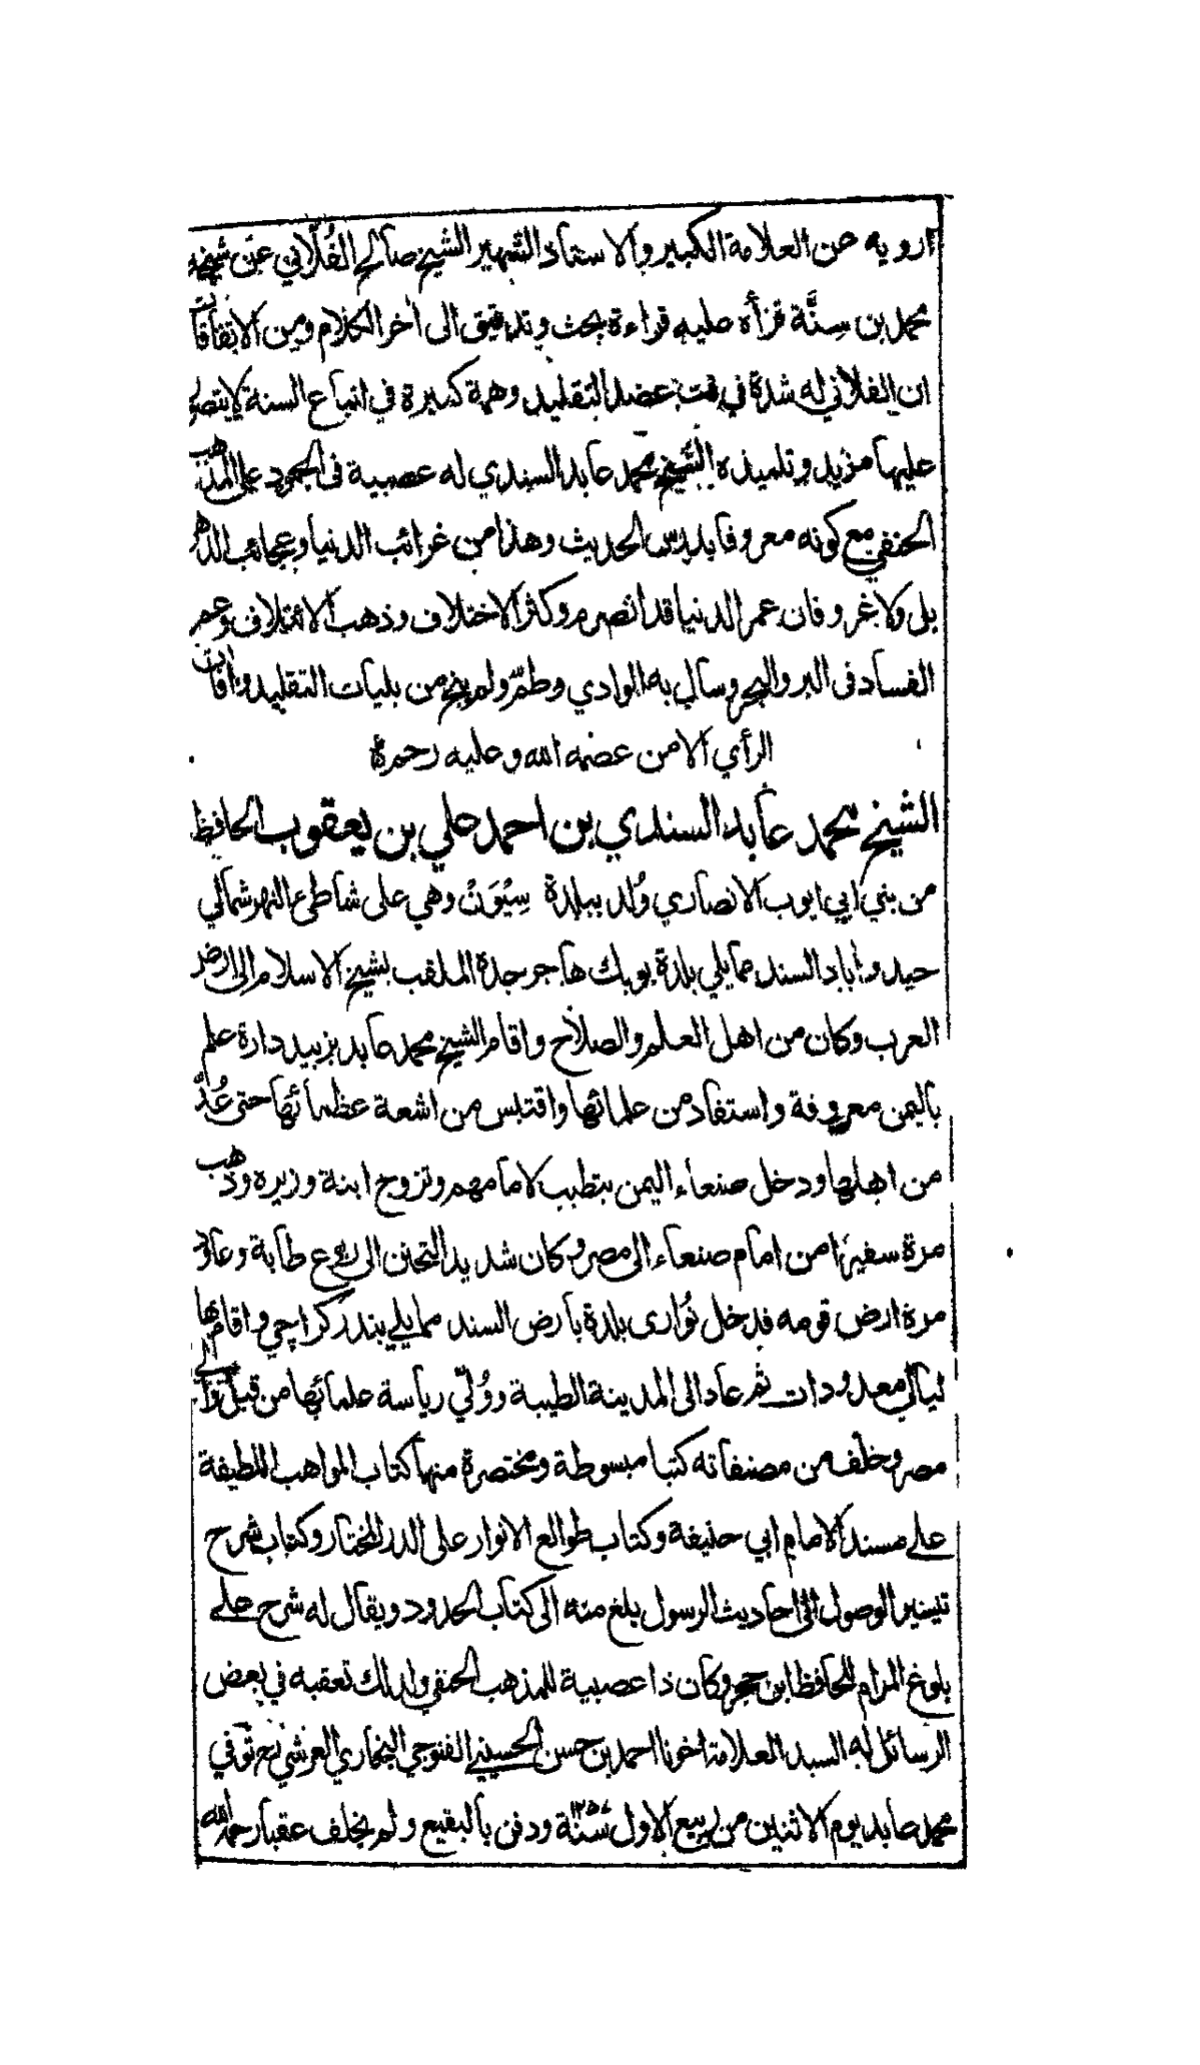 ارويه عن العلامة الكبير والاستاذ الشهير الشيخ صالح الفُلّاني عن شيخه
محمد بن سِنَّة قرأه عليه قراءة بحث وتدقيق الى اٰخر الكلام ومن الاتفاقات
ان الفلاني له شدة في عضد التقليد وهمة كبيرة في اتباع السنة لا يتصور
عليها مزيد وتلميذه الشيخ محمد عابد السندي له عصبية فى الجمود على المذهب
الحنفي مع كونه معروفا بدرس الحديث وهذا من غرائب الدنيا وعجائب الدهر
بلى ولا غرو فان عمر الدنيا قد انصرم وكثر الاختلاف وذهب الائتلاف وعم
الفساد فى البر والبحر وسال به الوادي وطمّ ولم ينج من بليات التقليد واٰفات
الرأي الا من عصمه الله وعليه رحمة
الشيخ محمد عابد السندي بن احمد علي بن يعقوب الحافظ
من بني ابي ايوب الانصاري وُلد ببلدة سِيْوَنْ وهي على شاطئ النهر شمالي
حيدراٰباد السند مما يلي بلدة بوبك هاجر جده الملقب بشيخ الاسلام الى ارض
العرب وكان من اهل العلم والصلاح واقام الشيخ محمد عابد بزبيد دارة علم
باليمن معروفة واستفاد من علمائها واقتبس من اشعة عظمائها حتى عُدّ
من اهلها ودخل صنعاء اليمن يتطبب لامامهم وتزوج ابنة وزيره وذهب
مرة سفيرًا من امام صنعاء الى مصر وكان شديد التحنن الى ربوع طابة وعاود
مرة ارض قومه فدخل نُوارى بلدة بارض السند مما يلي بندر كراچي واقام بها
ليالي معدودات ثم عاد الى المدينة الطيبة ووُلّي رياسة علمائها من قبل والي
مصر وخلّف من مصنفاته كتبا مبسوطة ومختصرة منها كتاب المواهب اللطيفة
على مسند الامام ابي حنيفة وكتاب طوالع الانوار على الدر المختار وكتاب شرح
تيسير الوصول الى احاديث الرسول بلغ منه الى كتاب الحدود ويقال له شرح على
بلوغ المرام للحافظ ابن حجر وكان ذا عصبية للمذهب الحنفي ولذلك تعقبه في بعض
الرسائل له السيد العلامة اخونا احمد بن حسن الحسيني القنوجي البخاري العرشي توفي
محمد عابد يوم الاثنين من ربيع الاول سنة ١٢٥٧ ودفن بالبقيع ولم يخلف عقبا رحمه الله